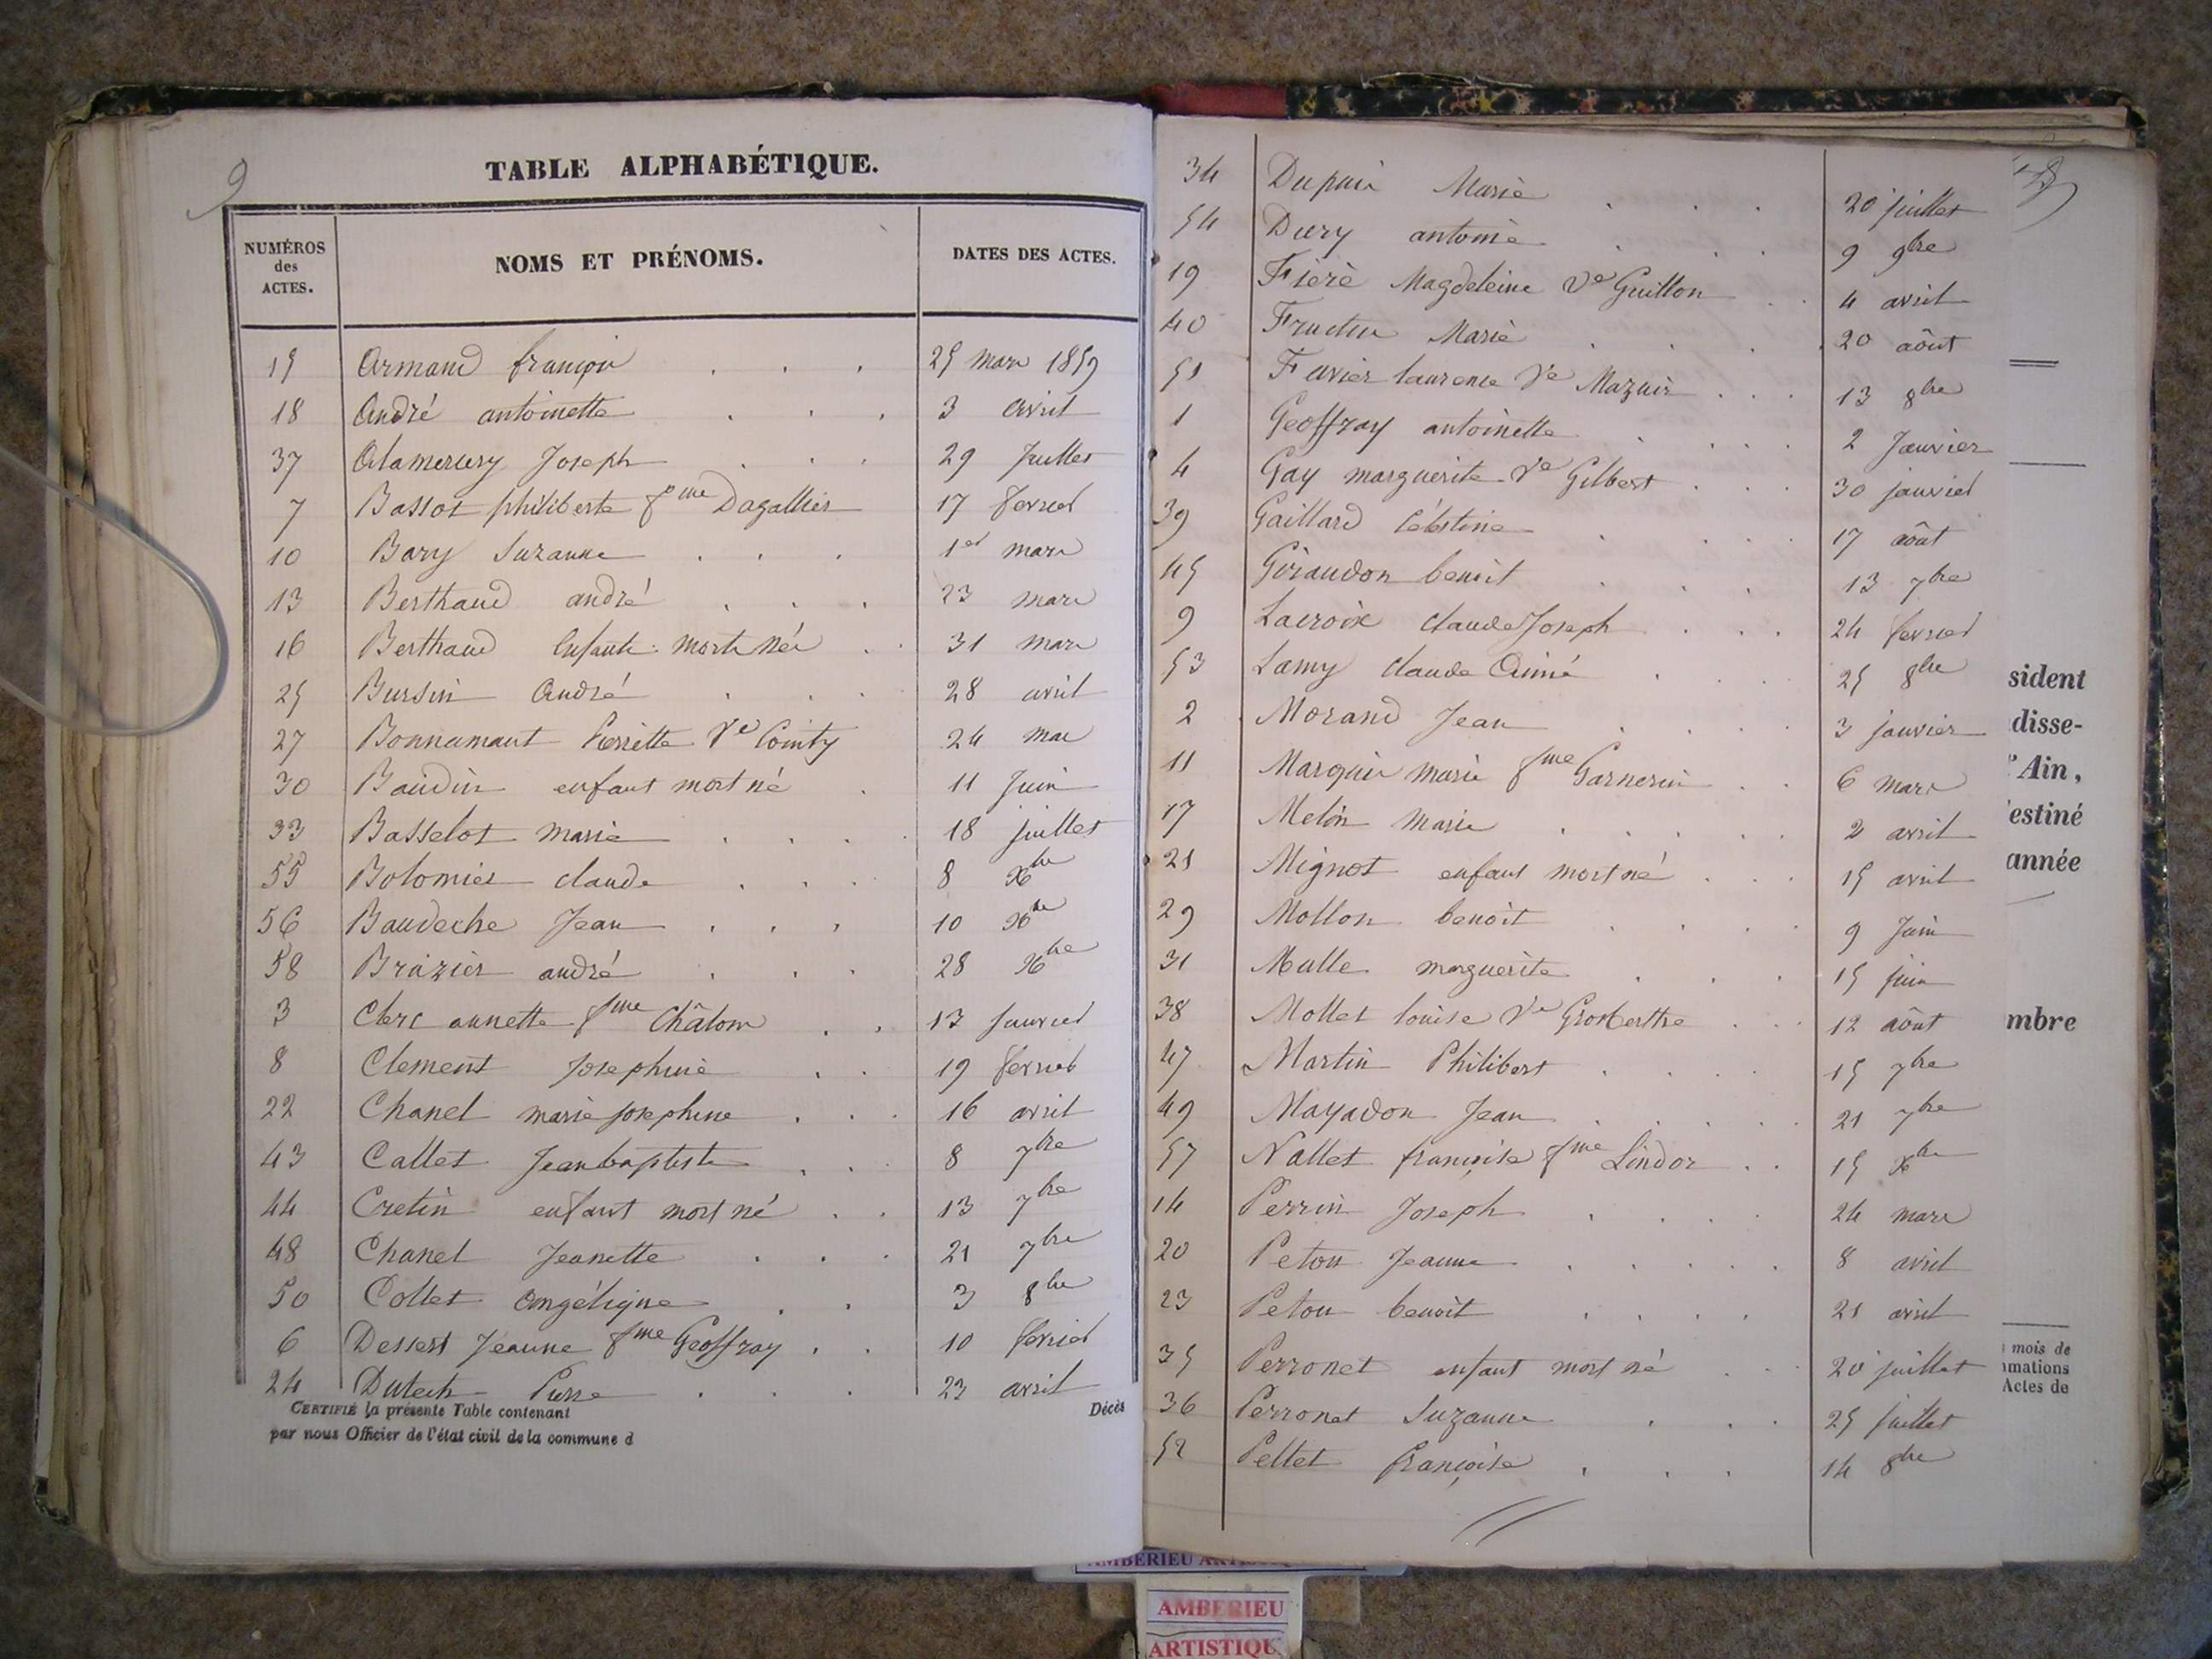 9
TABLE ALPHABÉTIQUE.
NUMÉROS des ACTES. NOMS ET PRÉNOMS. DATES DES ACTES.
15 Armand françois 25 mars 1859
18 André antoinette 3 avril
37 Alamercery Joseph 29 Juillet
7 Bassot philiberte fme Dagallier 17 fevrier
10 Bary Suzanne 1er mars
13 Berthaud andré 23 mars
16 Berthaud Enfante mort née 31 mars
25 Bursin André 28 avril
27 Bonnamant Pierrette Ve Cointy 24 mai
30 Baudin enfant mort né 11 Juin
33 Basselot marie 18 juillet
55 Bolomier claude 8 Xbre
56 Baudeche Jean 10 Xbre
58 Brazier andré 28 Xbre
3 Clerc annette fme Châlon 13 Janvier
8 Clement Josephine 19 fevrier
22 Chanel marie josephine 16 avril
43 Callet Jean baptiste 8 7bre
44 Cretin enfant mort né 13 7bre
48 Chanel Jeanette 21 7bre
50 Collet Angélique 3 8bre
6 Dessert Jeanne fme Geoffray 10 fevrier
24 Dutech Pierre 23 avril
CERTIFIÉ la présente Table contenant Décès
par nous Officier de l'état civil de la commune d
34 Dupuis Marie 20 juillet
54 Dury antoine 9 9bre
19 Fiere Magdeleine Ve Guillon 4 avril
40 Marie 20 août
51 Favier laurence Ve Mazuir 13 8bre
1 Geoffray antoinette 2 Janvier
4 Gay marguerite Ve Gilbert 30 janvier
39 Gaillard Célestine 17 août
45 Giraudon benoit 13 7bre
9 Lacroix claude Joseph 24 fevrier
53 Lamy claude Aimé 25 8bre
2 Morand Jean 3 janvier
11 Marquis marie fme Garnerin 6 mars
17 Melon Marie 2 avril
21 Mignot enfant mort né 15 avril
29 Mollon benoit 9 Juin
31 Malle marguerite 15 juin
38 Mollet louise Ve Grosberthe 12 août
47 Martin Philibert 15 7bre
49 Mayadon Jean 21 7bre
57 Nallet françoise fme Lindor 15 Xbre
14 Perrin Joseph 24 mars
20 Petou Jeanne 8 avril
23 Petou benoit 21 avril
35 Perronet enfant mort né 20 juillet
36 Perronet Suzanne 25 juillet
52 Pellet françoise 14 8bre
sident
disse-
Ain,
estiné
année
mbre
mois de
mations
Actes de
AMBERIEU
AMBERIEU
ARTISTIQU